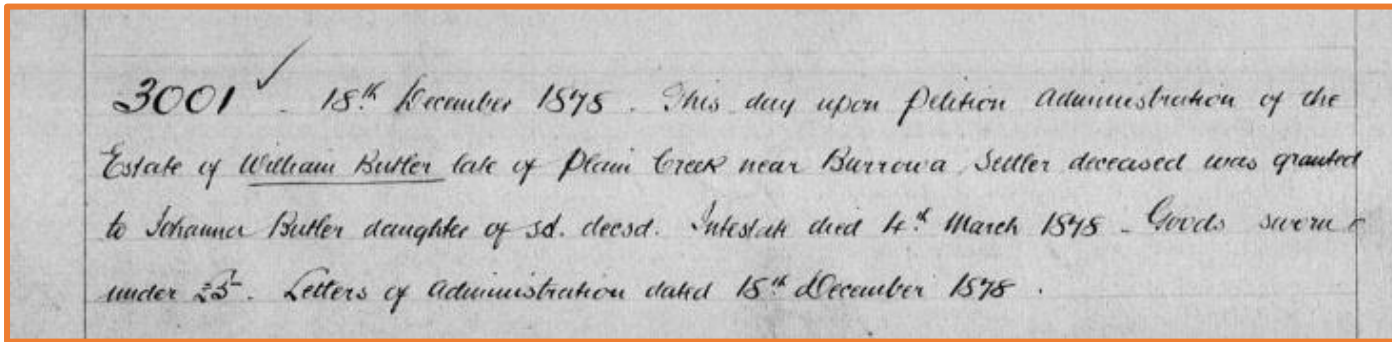 3001 ✓ - 18th December 1878. This day upon Petition Administration of the
Estate of William Butler late of Plain Creek near Burrowa, Settler deceased was granted
to Johanna Butler daughter of sd. decsd. Intestate died 4th March 1878 - Goods sworn
under £5-. Letters of Administration dated 18th December 1878.